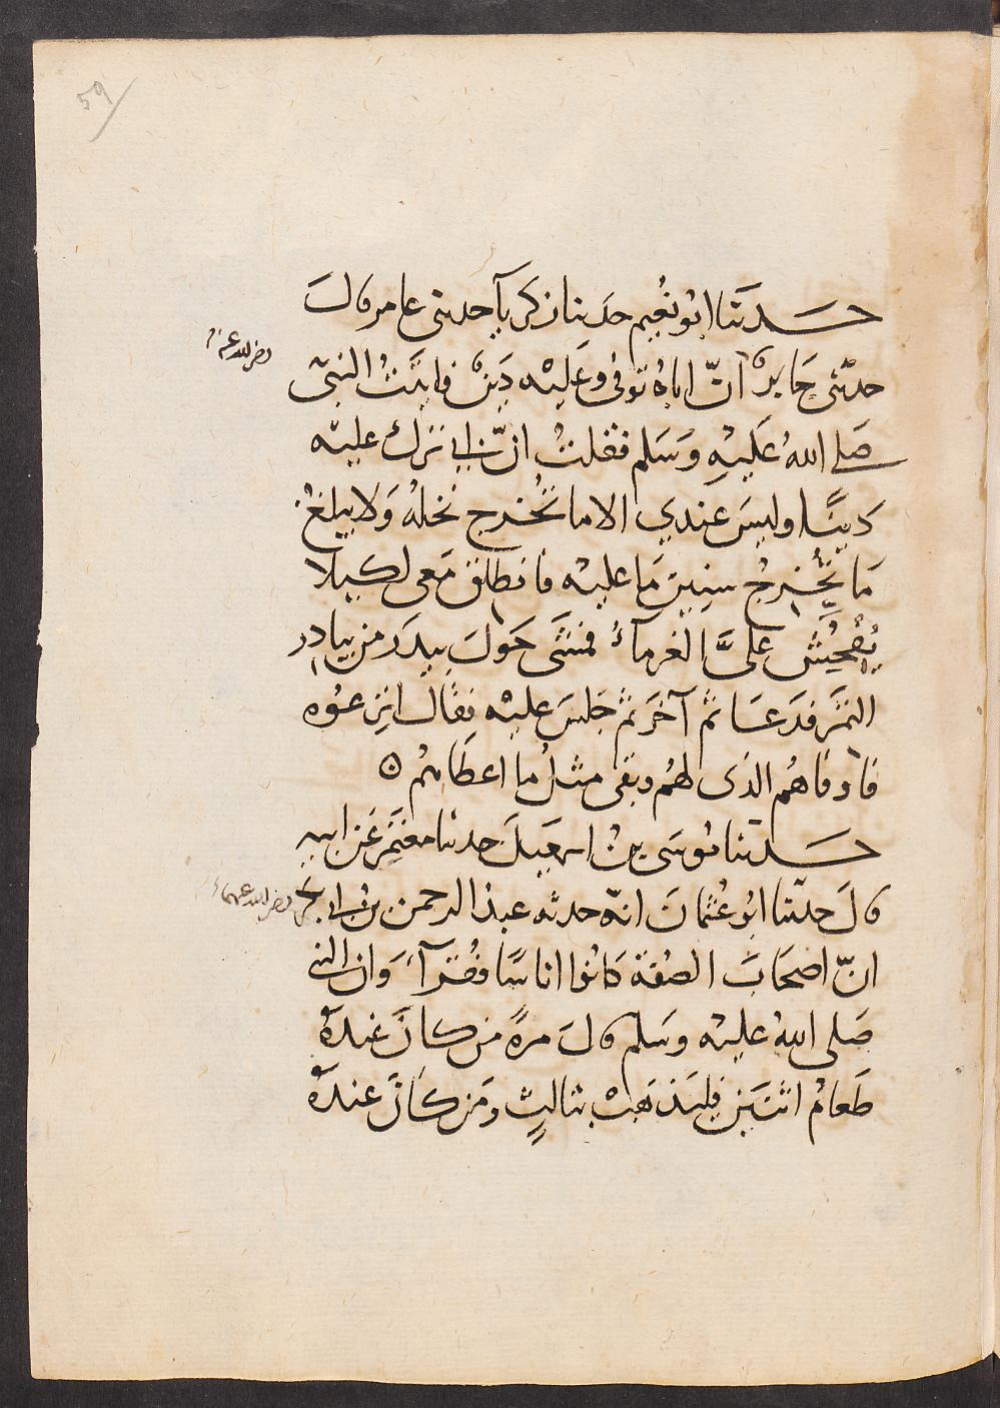 59
حدثنا ابو نُعَيم حدثنا زكريآ حدثنى عامر قالَ
رضى الله عنه
حدثنى جَابرٌ اَنّ اباهُ توفى وعَليْه دَينٌ فاتيَتُ النبىّ
صَلى اللهُ عَليْهِ وَسَلم فقلتُ انّ ابي ترك عليْه
دَينًا وليسَ عندي الا ما تُخْرج نخلهُ وَلا يبلغُ
مَا تُخْرجُ سنين مَا عليْه فانطلق مَعى لكيلا
يُفْحِشَ علىَّ الغرمآءُ فمشَى حَولَ بيدَر من بيادِر
التمَرِ فدَعَا ثم آخَر ثم جَلسَ عليْه فقال انزعوُه
فاوفاهُم الذى لهُم وبقى مثلُ ما اعطَاهُم ه
حدثنا مُوسَى بنُ اسمعيلَ حدثنا معتمِر عَن ابيه
قالَ حدثنا ابُو عُثمانَ انهّ حدثه عبدُ الرحمن بنُ ابي بكر
رضى الله عنهما
انّ اصحَابَ الصُفة كانُوا اناسًا فقرآءَ وَان النبي
صَلى اللهُ عليْه وسَلم قالَ مرةً من كانَ عندَهُ
طَعامُ اثنَيَن فليَذهَبْ بثالثٍ ومَن كانَ عندَهُ